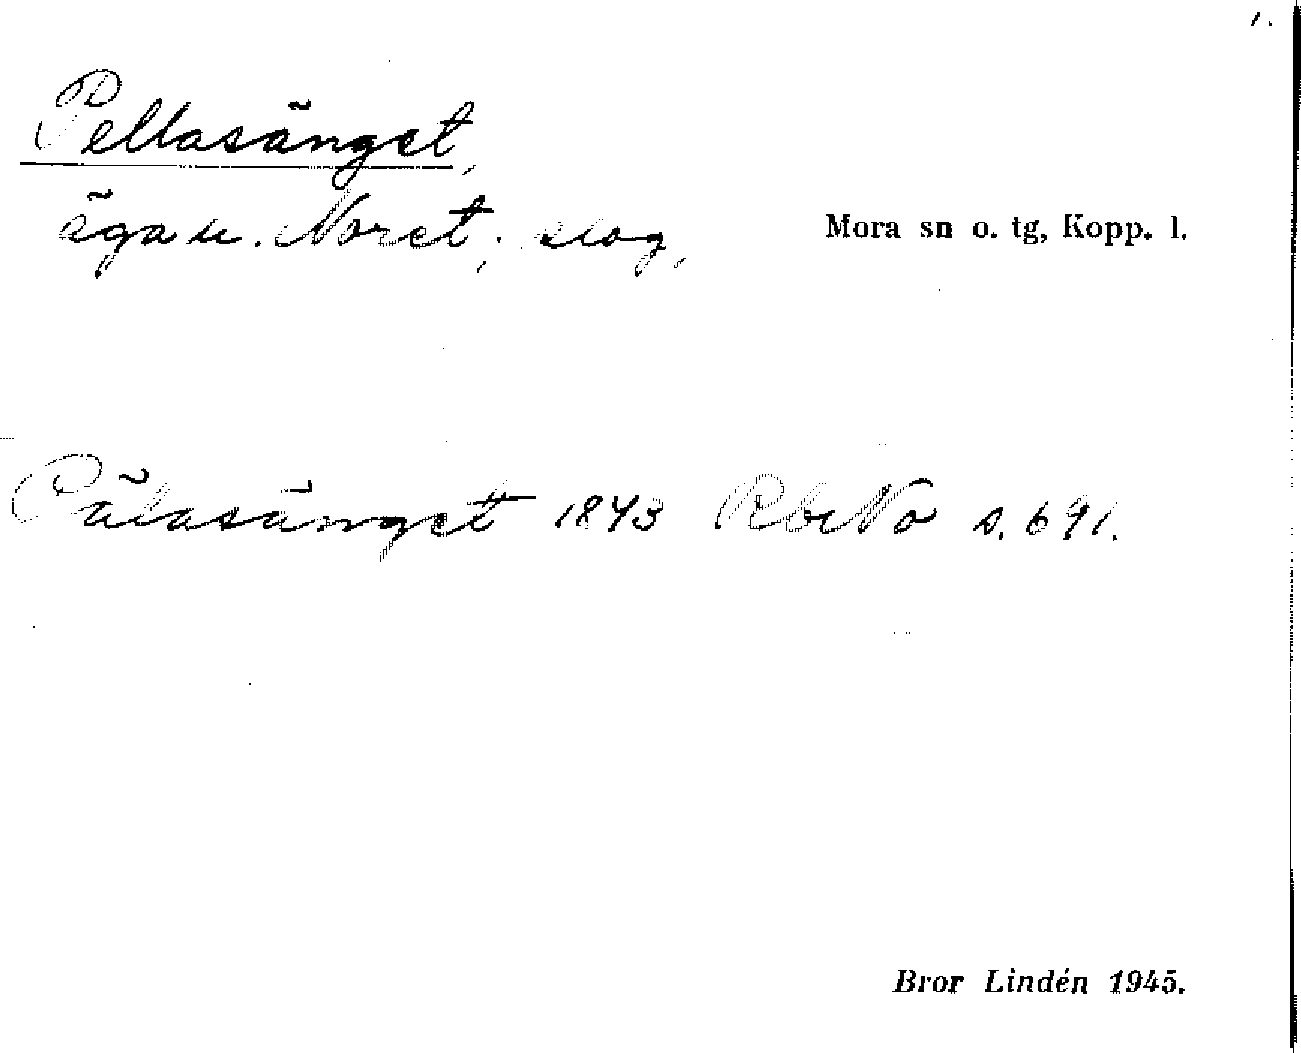 1.
Pellasänget,
äga u. Noret; slog,
Mora sn o. tg, Kopp. l.
Pälasänget 1843 RbNo s. 691.
Bror Lindén 1945.